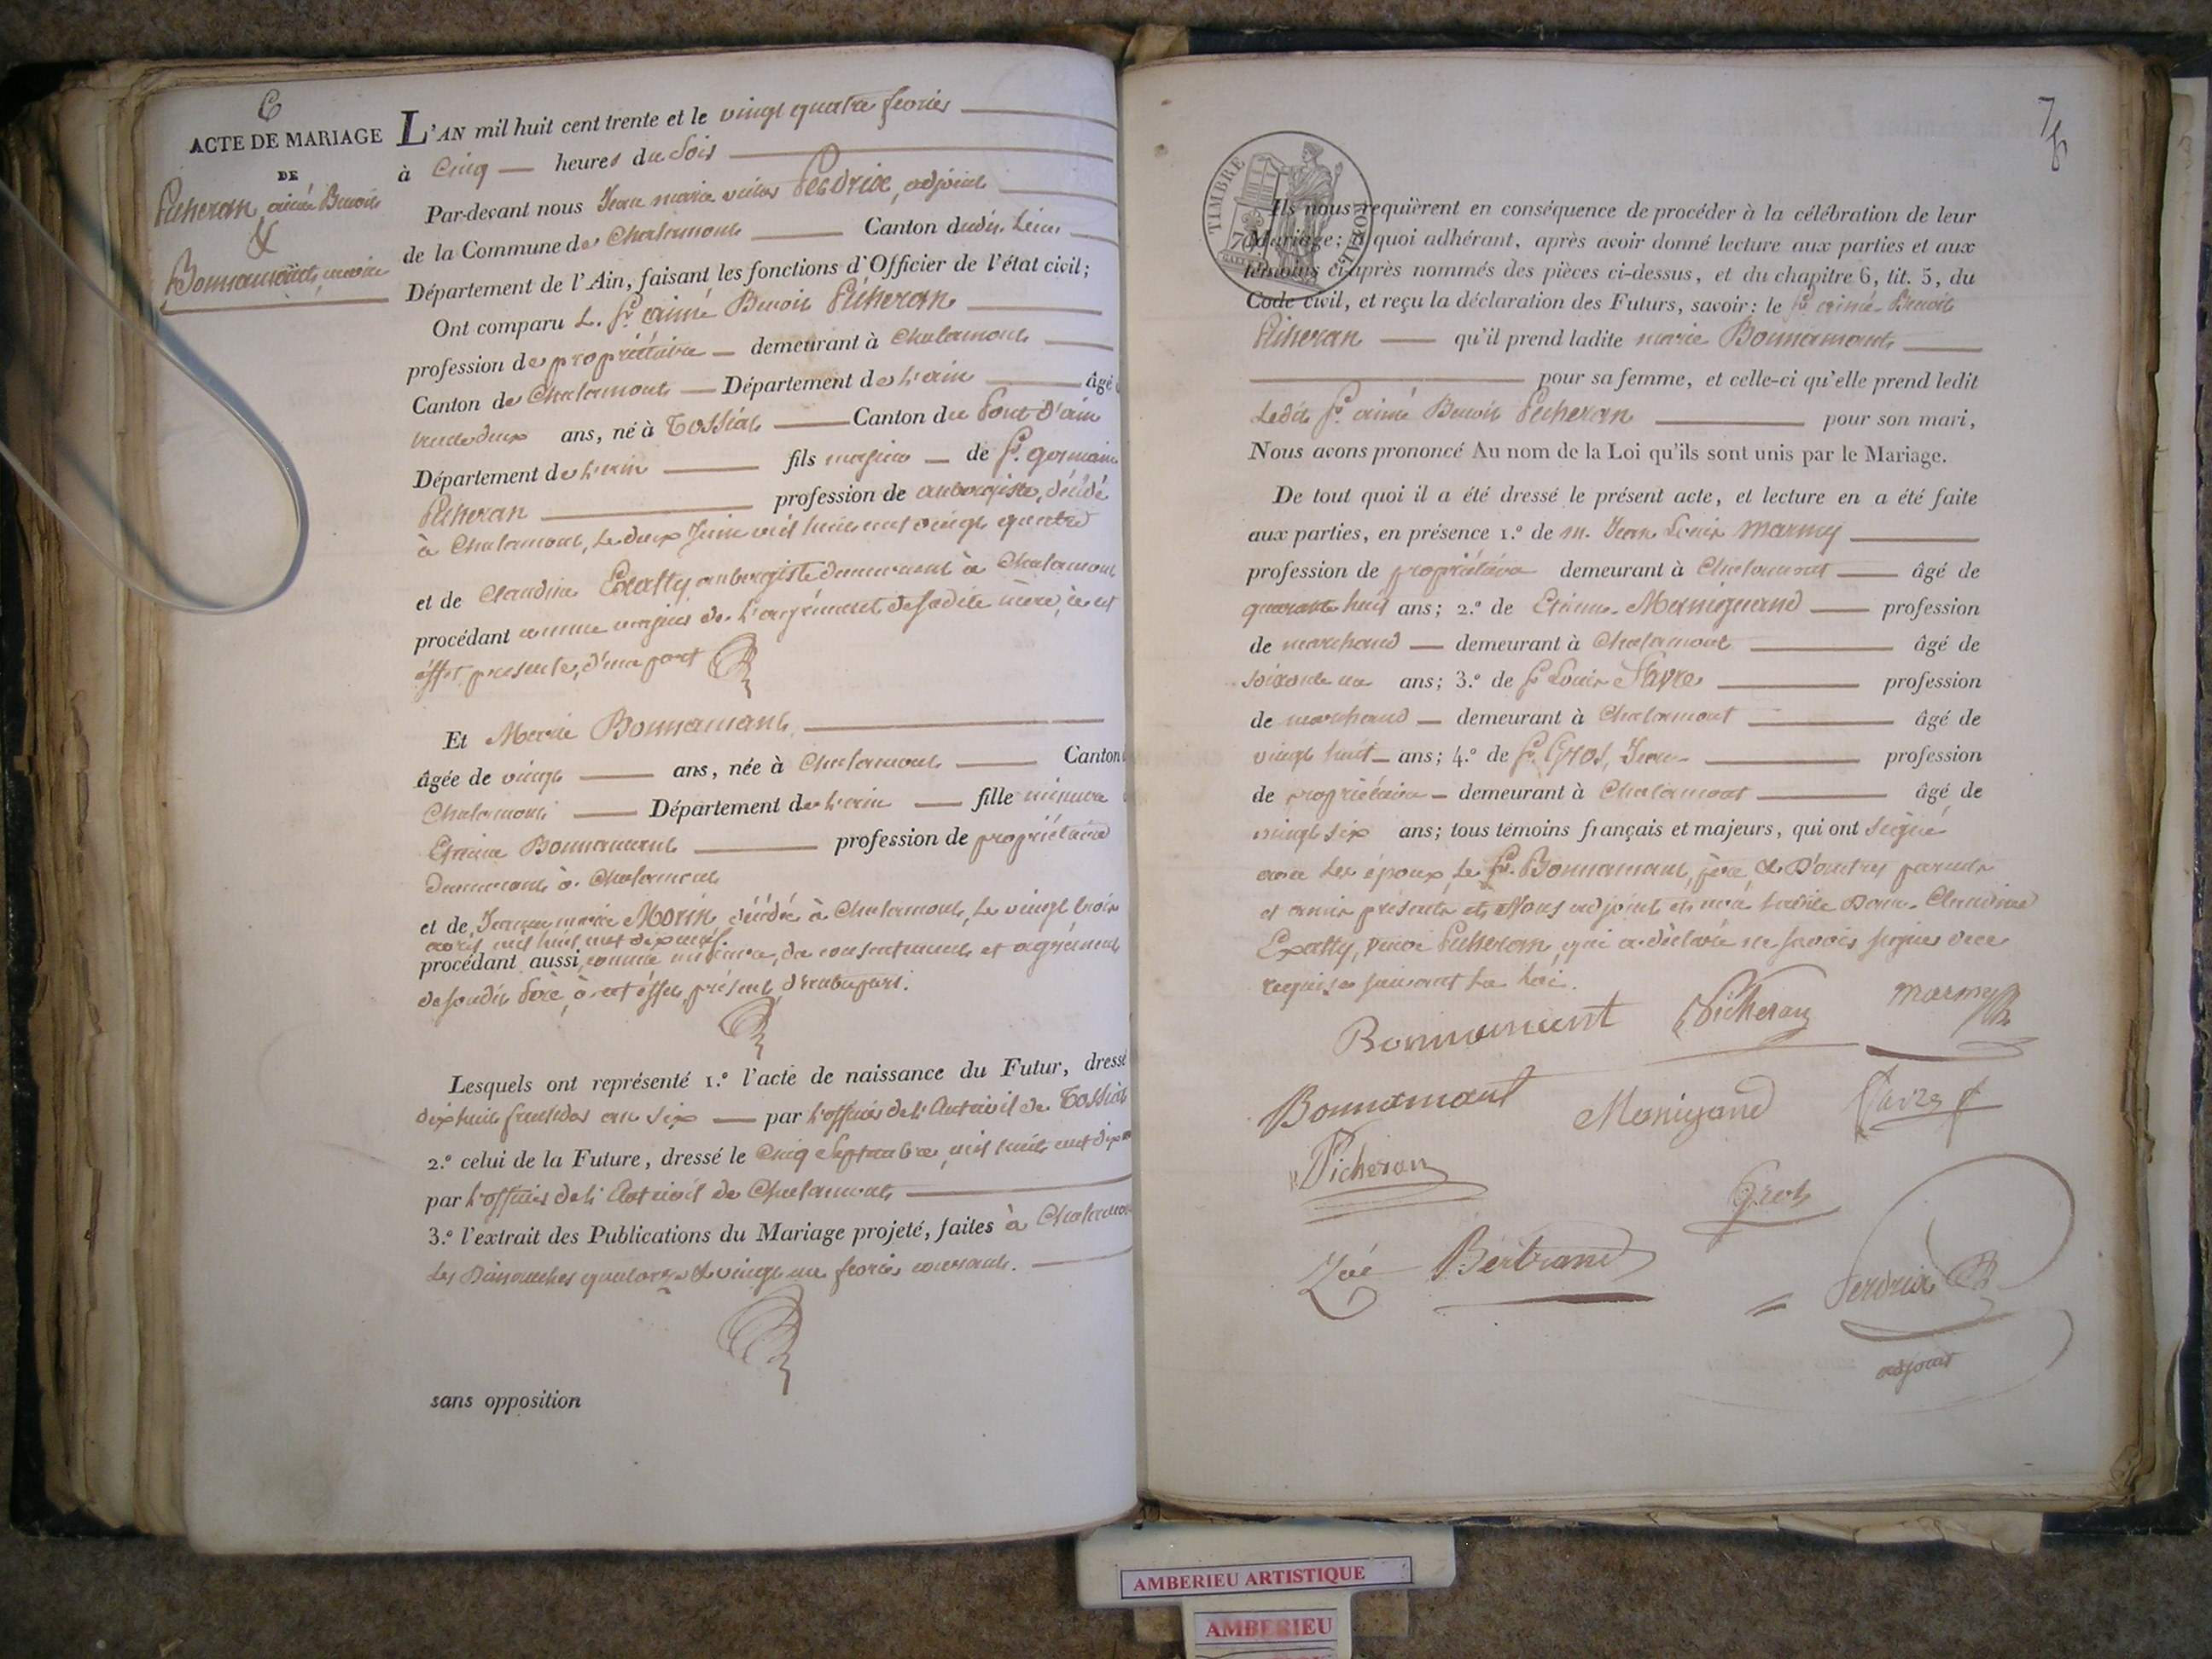 6
ACTE DE MARIAGE
DE
Picheran, aimé Benoit
&
Bonnamant, marie
L'AN mil huit cent trente et le vingt quatre fevrier
à Cinq heures du Soir
Par-devant nous Jean marie victor Perdrix, adjoint
de la Commune de Chalamont Canton dudit Lieu
Département de l'Ain, faisant les fonctions d'Officier de l'état civil;
Ont comparu L. Sr. aimé Benoit Picheran
profession de propriétaire demeurant à Chalamont
Canton de Chalamont Département de L'ain âgé
trente deux ans, né à Tossiat Canton du Pont d'ain
Département de L'ain fils majeur de Sr. germain
Picheran profession de aubergiste, décédé
à Chalamont, Le deux Juin mil huit cent vingt quatre
et de Claudine Exatty aubergiste demeurant à Chalamont
procédant comme majeur de L'agrément de sadite mère, à cet
éffet présente, d'une part
Et Marie Bonnamant
âgée de vingt ans, née à Chalamont Canton
Chalamont Département de L'ain fille mineure
Etienne Bonnamant profession de propriétaire
demeurant à Chalamont
et de Jeanne marie Morin, décédée à Chalamont, Le vingt trois
avril mil huit cent dix neuf.
procédant aussi comme mineure, du consentement et agrément
de sondit Père, à cet éffet, présent, d'autre part.
Lesquels ont représenté 1.º l'acte de naissance du Futur, dressé
dix huit an six par L'officier de L'État civil de Tossiat
2.º celui de la Future, dressé le Cinq Septembre, mil huit cent dix
par L'officier de L'État civil de Chalamont
3.º l'extrait des Publications du Mariage projeté, faites à Chalamont
Les Dimanches quatorze & vingt un fevrier courant.
sans opposition
7
TIMBRE ROYAL
Ils nous requièrent en conséquence de procéder à la célébration de leur
Mariage; à quoi adhérant, après avoir donné lecture aux parties et aux
témoins ci-après nommés des pièces ci-dessus, et du chapitre 6, tit. 5, du
Code civil, et reçu la déclaration des Futurs, savoir: le Sr. aimé Benoit
Picheran qu'il prend ladite marie Bonnamant
pour sa femme, et celle-ci qu'elle prend ledit
Ledit Sr. aimé Benoit Picheran pour son mari,
Nous avons prononcé Au nom de la Loi qu'ils sont unis par le Mariage.
De tout quoi il a été dressé le présent acte, et lecture en a été faite
aux parties, en présence 1.º de m. Jean Louis Marmy
profession de propriétaire demeurant à Chalamont âgé de
quarante huit ans; 2.º de Etienne Manigand profession
de marchand demeurant à Chalamont âgé de
soixante un ans; 3.º de Sr Louis Favre profession
de marchand demeurant à Chalamont âgé de
vingt huit ans; 4.º de Sr. Gros, Jean profession
de propriétaire demeurant à Chalamont âgé de
vingt six ans; tous témoins français et majeurs, qui ont signé
avec Les époux, Le Sr. Bonnamant, père & D'autres parents
et amis présents et Nous adjoint et non Ladite Dame Claudine
Exatty, veuve Picheran, qui a déclaré ne savoir signer de ce
requise suivant La Loi.
Bonnamant Picheran Marmy
Bonnamant Manigand Favre
Picheran
Gros
Zoé Bertrand
Perdrix
adjoint
AMBERIEU ARTISTIQUE
AMBERIEU